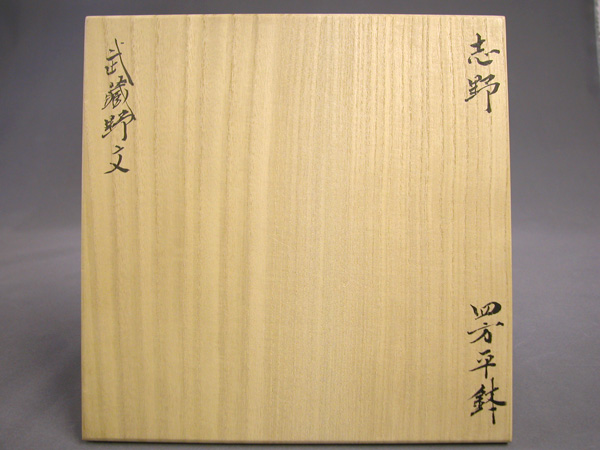 志野
四方平鉢
武蔵野文